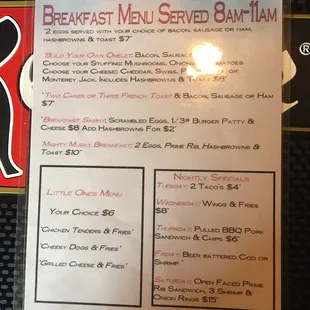 Breakfast Menu Served 8am-11am
"2 eggs served with your choice of bacon, sausage or ham,
hashbrowns & toast $7"
"Build Your Own Omelet: Bacon, Sausage
Choose your Stuffing: Mushrooms, Onions,
Choose your Cheese: Cheddar, Swiss,
Monterey Jack. Includes Hashbrowns & Toast $8"
"Two Cakes or Three French Toast & Bacon, Sausage or Ham
$7"
"Breakfast Sammy: Scrambled Eggs, 1/3# Burger Patty &
Cheese $8 Add Hashbrowns for $2"
"Mighty Musky Breakfast: 2 Eggs, Prime Rib, Hashbrowns &
Toast $10"
Little Ones Menu
Your Choice $6
"Chicken Tenders & Fries"
"Cheesy Dogs & Fries"
"Grilled Cheese & Fries"
Nightly Specials
Tuesday: 2 Taco's $4"
Wednesday: Wings & Fries
$8"
Thursday: Pulled BBQ Pork
Sandwich & Chips $6"
Friday: Beer battered Cod or
Shrimp"
Saturday: Open Faced Prime
Rib Sandwich, 3 Shrimp &
Onion Rings $15"
®